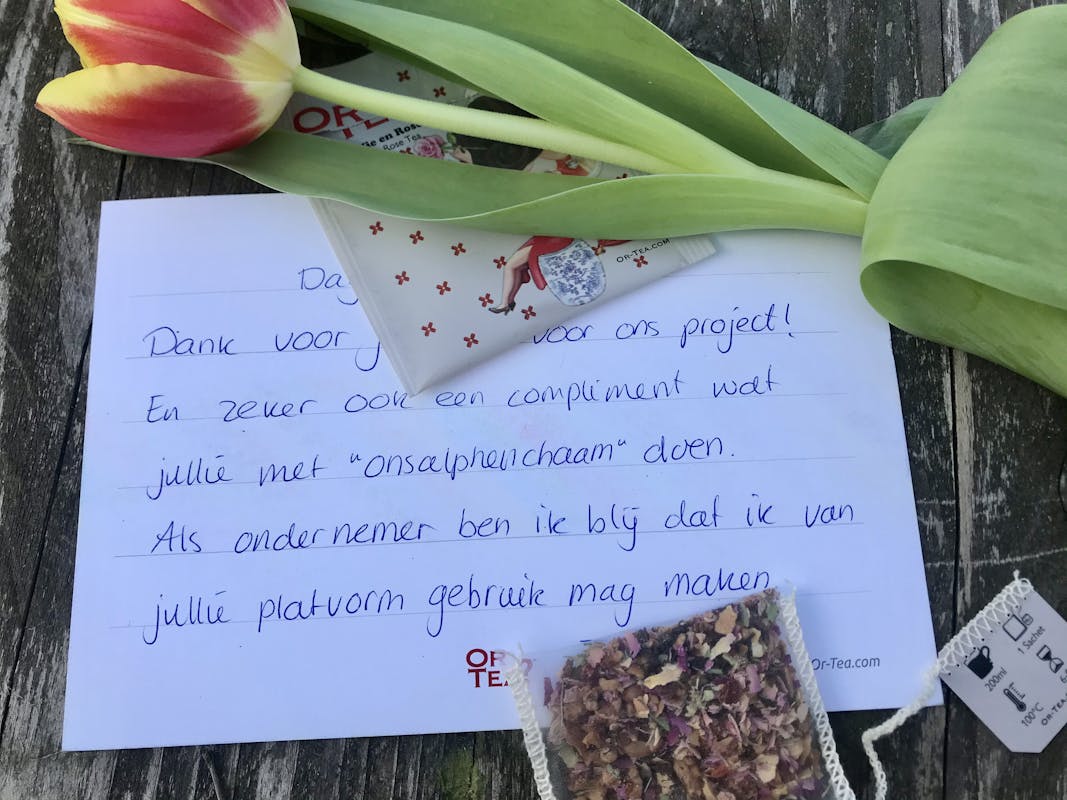 OR
TEA
en Rose
Rose Tea
OR-TEA.COM
Dag
Dank voor voor ons project!
En zeker ook een compliment wat
jullie met "onsalphenchaam" doen.
Als ondernemer ben ik blij dat ik van
jullie platvorm gebruik mag maken
OR
TEA
Or-Tea.com
200ml
1 Sachet
100°C
OR-TEA